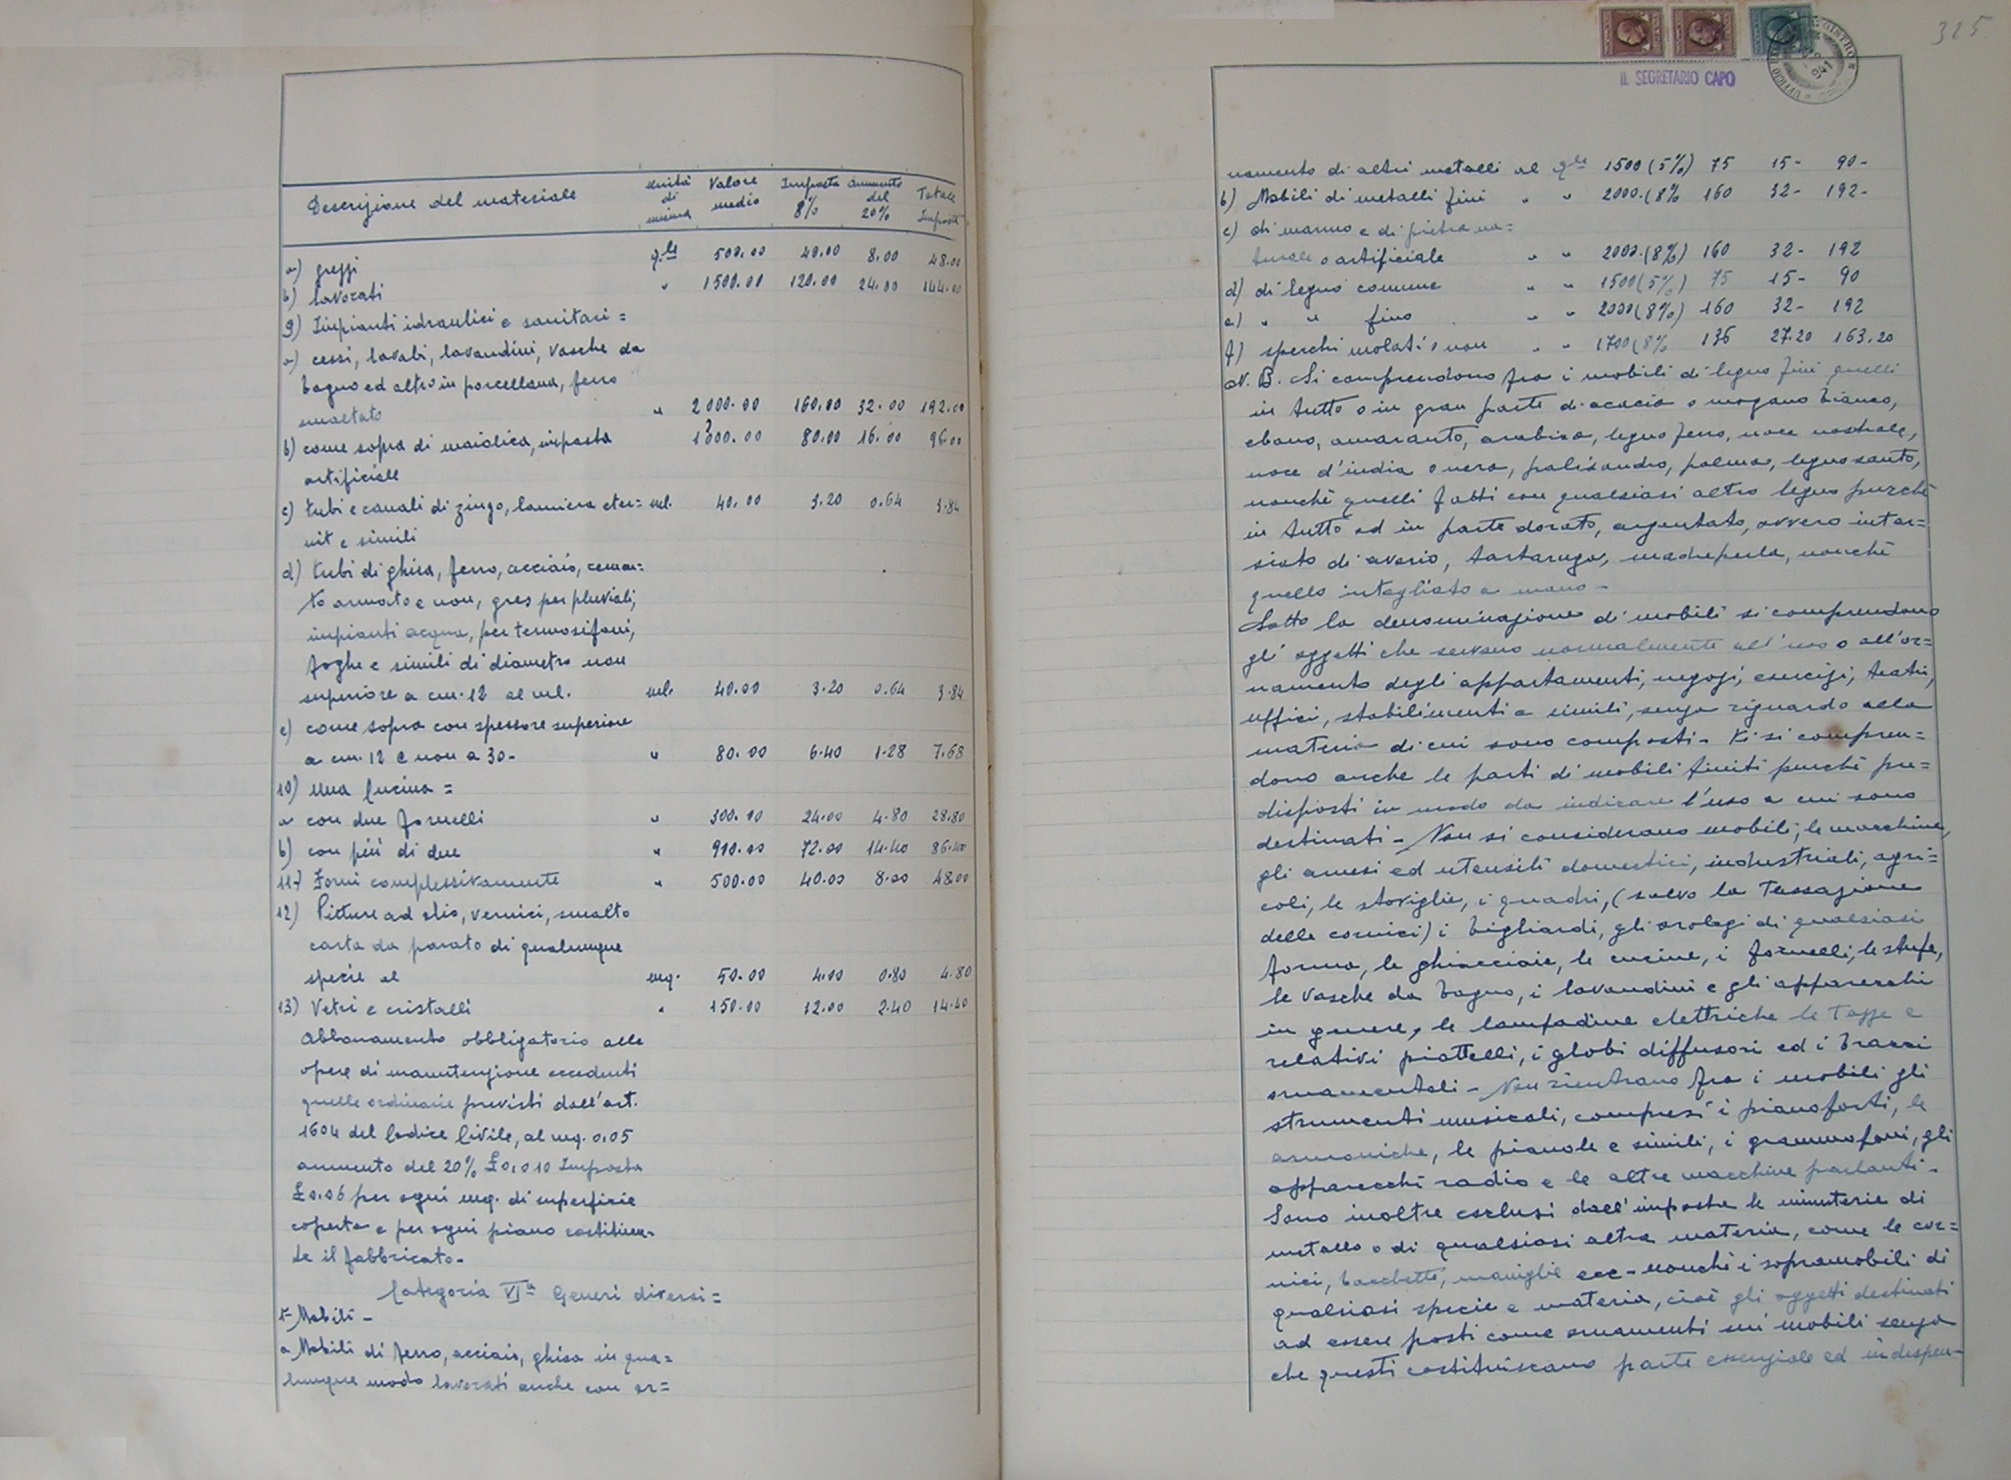 Descrizione del materiale | unità di misura | Valore medio | Imposta 8% | aumento del 20% | Totale Imposta
a) greggi q.le 500.00 40.00 8.00 48.00
b) lavorati " 1500.00 120.00 24.00 144.00
9) Impianti idraulici e sanitari=
a) cessi, lavabi, lavandini, vasche da
bagno ed altro in porcellana, ferro
smaltato " 2000.00 160.00 32.00 192.00
b) come sopra di maiolica, impasto 1000.00 80.00 16.00 96.00
artificiale
c) tubi e canali di zingo, lamiera eter= ml. 40.00 3.20 0.64 3.84
nit e simili
d) tubi di ghisa, ferro, acciaio, cemen=
to armato e non, gres per pluviali,
impianti acqua, per termosifoni,
foghe e simili di diametro non
superiore a cm. 12 al ml. ml. 40.00 3.20 0.64 3.84
e) come sopra con spessore superiore
a cm. 12 e non a 30- " 80.00 6.40 1.28 7.68
10) Una Cucina=
a con due fornelli " 300.00 24.00 4.80 28.80
b) con più di due " 900.00 72.00 14.40 86.40
11) Forni complessivamente " 500.00 40.00 8.00 48.00
12) Pitture ad olio, vernici, smalto
carta da parato di qualunque
specie al mq. 50.00 4.00 0.80 4.80
13) Vetri e cristalli " 150.00 12.00 2.40 14.40
Abbonamento obbligatorio alle
opere di manutenzione eccedenti
quelle ordinarie previsti dall'art.
1604 del Codice Civile, al mq. 0.05
aumento del 20% £0,010 Imposta
£0.06 per ogni mq. di superficie
coperta e per ogni piano costituen-
te il fabbricato-
Categoria VIª Generi diversi=
1- Mobili-
a Mobili di ferro, acciaio, ghisa in qua=
lunque modo lavorati anche con or=
325
IL SEGRETARIO CAPO
namento di altri metalli al q.le 1500 (5%) 75 15- 90-
b) Mobili di metalli fini " " 2000.(8% 160 32- 192-
c) di marmo e di pietra na=
turale o artificiale " " 2000.(8%) 160 32- 192
d) di legno comune " " 1500(5%) 75 15- 90
e) " " fino " " 2000(8%) 160 32- 192
f) specchi molati o non " " 1700(8% 136 27.20 163.20
N.B. Si comprendono fra i mobili di legno fini quelli
in tutto o in gran parte di acacia o mogano bianco,
ebano, amaranto, arabica, legno ferro, noce nostrale,
noce d'india o nera, palisandro, palma, legno santo,
nonchè quelli fatti con qualsiasi altro legno purchè
in tutto od in parte dorato, argentato, ovvero intar=
siato di avorio, tartaruga, madreperla, nonchè
quello intagliato a mano-
Sotto la denominazione di mobili si comprendono
gli oggetti che servono normalmente all'uso o all'or=
namento degli appartamenti, negozi, esercizi, teatri,
uffici, stabilimenti e simili, senza riguardo alla
materia di cui sono composti- Vi si compren=
dono anche le parti di mobili finiti purchè pre=
disposti in modo da indicare l'uso a cui sono
destinati- Non si considerano mobili; le macchine,
gli arnesi ed utensili domestici, industriali, agri=
coli, le stoviglie, i quadri, (salvo la tassazione
delle cornici) i bigliardi, gli orologi di qualsiasi
forma, le ghiacciaie, le cucine, i fornelli, le stufe,
le vasche da bagno, i lavandini e gli apparecchi
in genere, le lampadine elettriche le tazze e
relativi piattelli, i globi diffusori ed i bracci
ornamentali- Non rientrano fra i mobili gli
strumenti musicali, compresi i pianoforti, le
armoniche, le pianole e simili, i grammofoni, gli
apparecchi radio e le altre macchine parlanti-
Sono inoltre esclusi dall'imposta le minuterie di
metallo o di qualsiasi altra materia, come le cor=
nici, bacchette, maniglie ecc- nonchè i sopramobili di
qualsiasi specie e materia, cioè gli oggetti destinati
ad essere posti come ornamenti sui mobili senza
che questi costituiscano parte essenziale ed indispen-